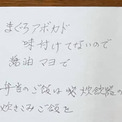 まぐろアボカド
味付けてないので
醤油 マヨで
弁当のご飯は 炊飯器の
炊きこみご飯を